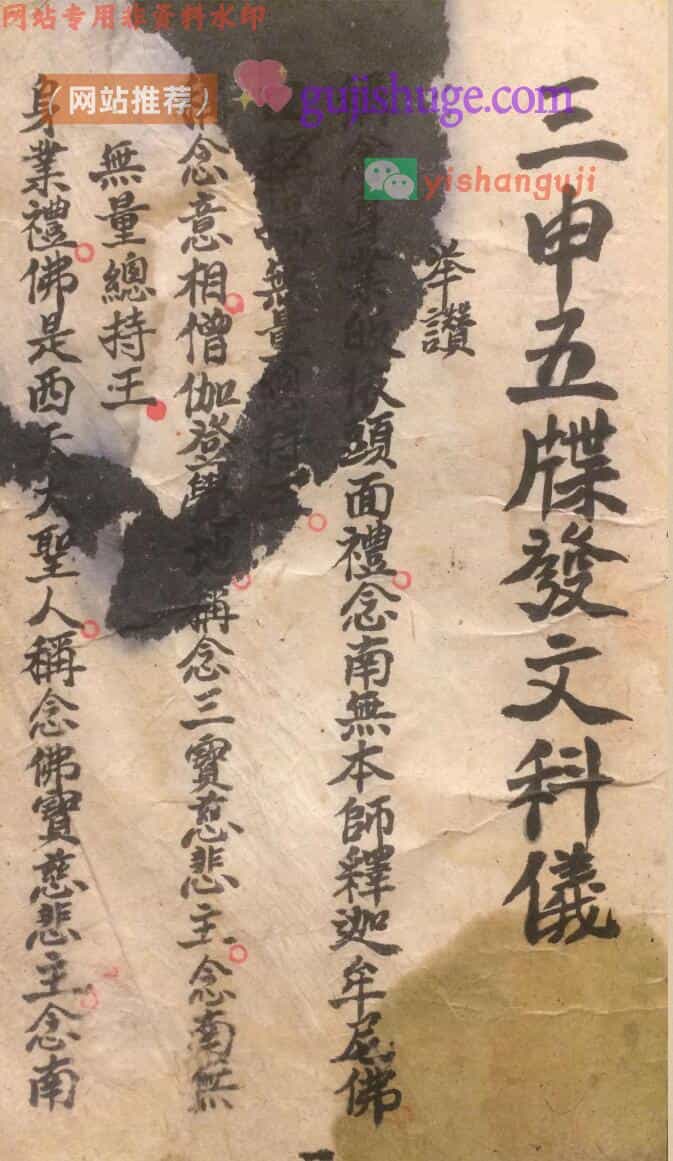 网站专用非资料水印
（网站推荐）
gujishuge.com
yishanguji
三申五牒發文科儀
举讚
念身業皈依頭面禮念南無本師釋迦牟尼佛
無量總持王
念意相僧伽登學地稱念三寶慈悲主念南無
無量總持王
身業禮佛是西天大聖人稱念佛寶慈悲主念南